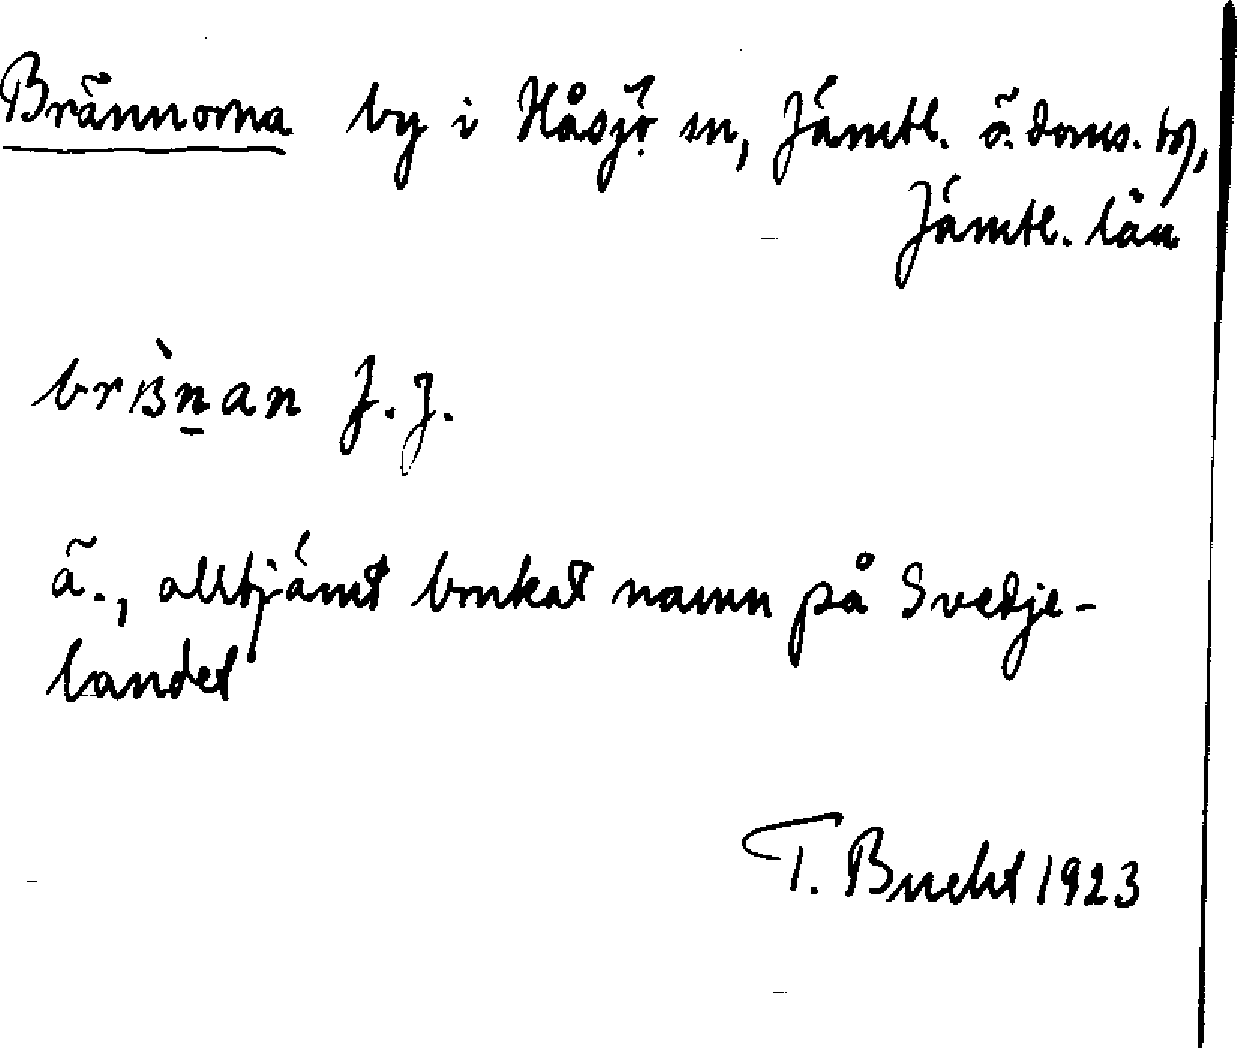 Brännorna by i Håsjö sn, Jämtl. ö. doms. tg,
Jämtl. län
brännan J. J.
ä., alltjämt brukat namn på Svedje-
landet
T. Bucht 1923